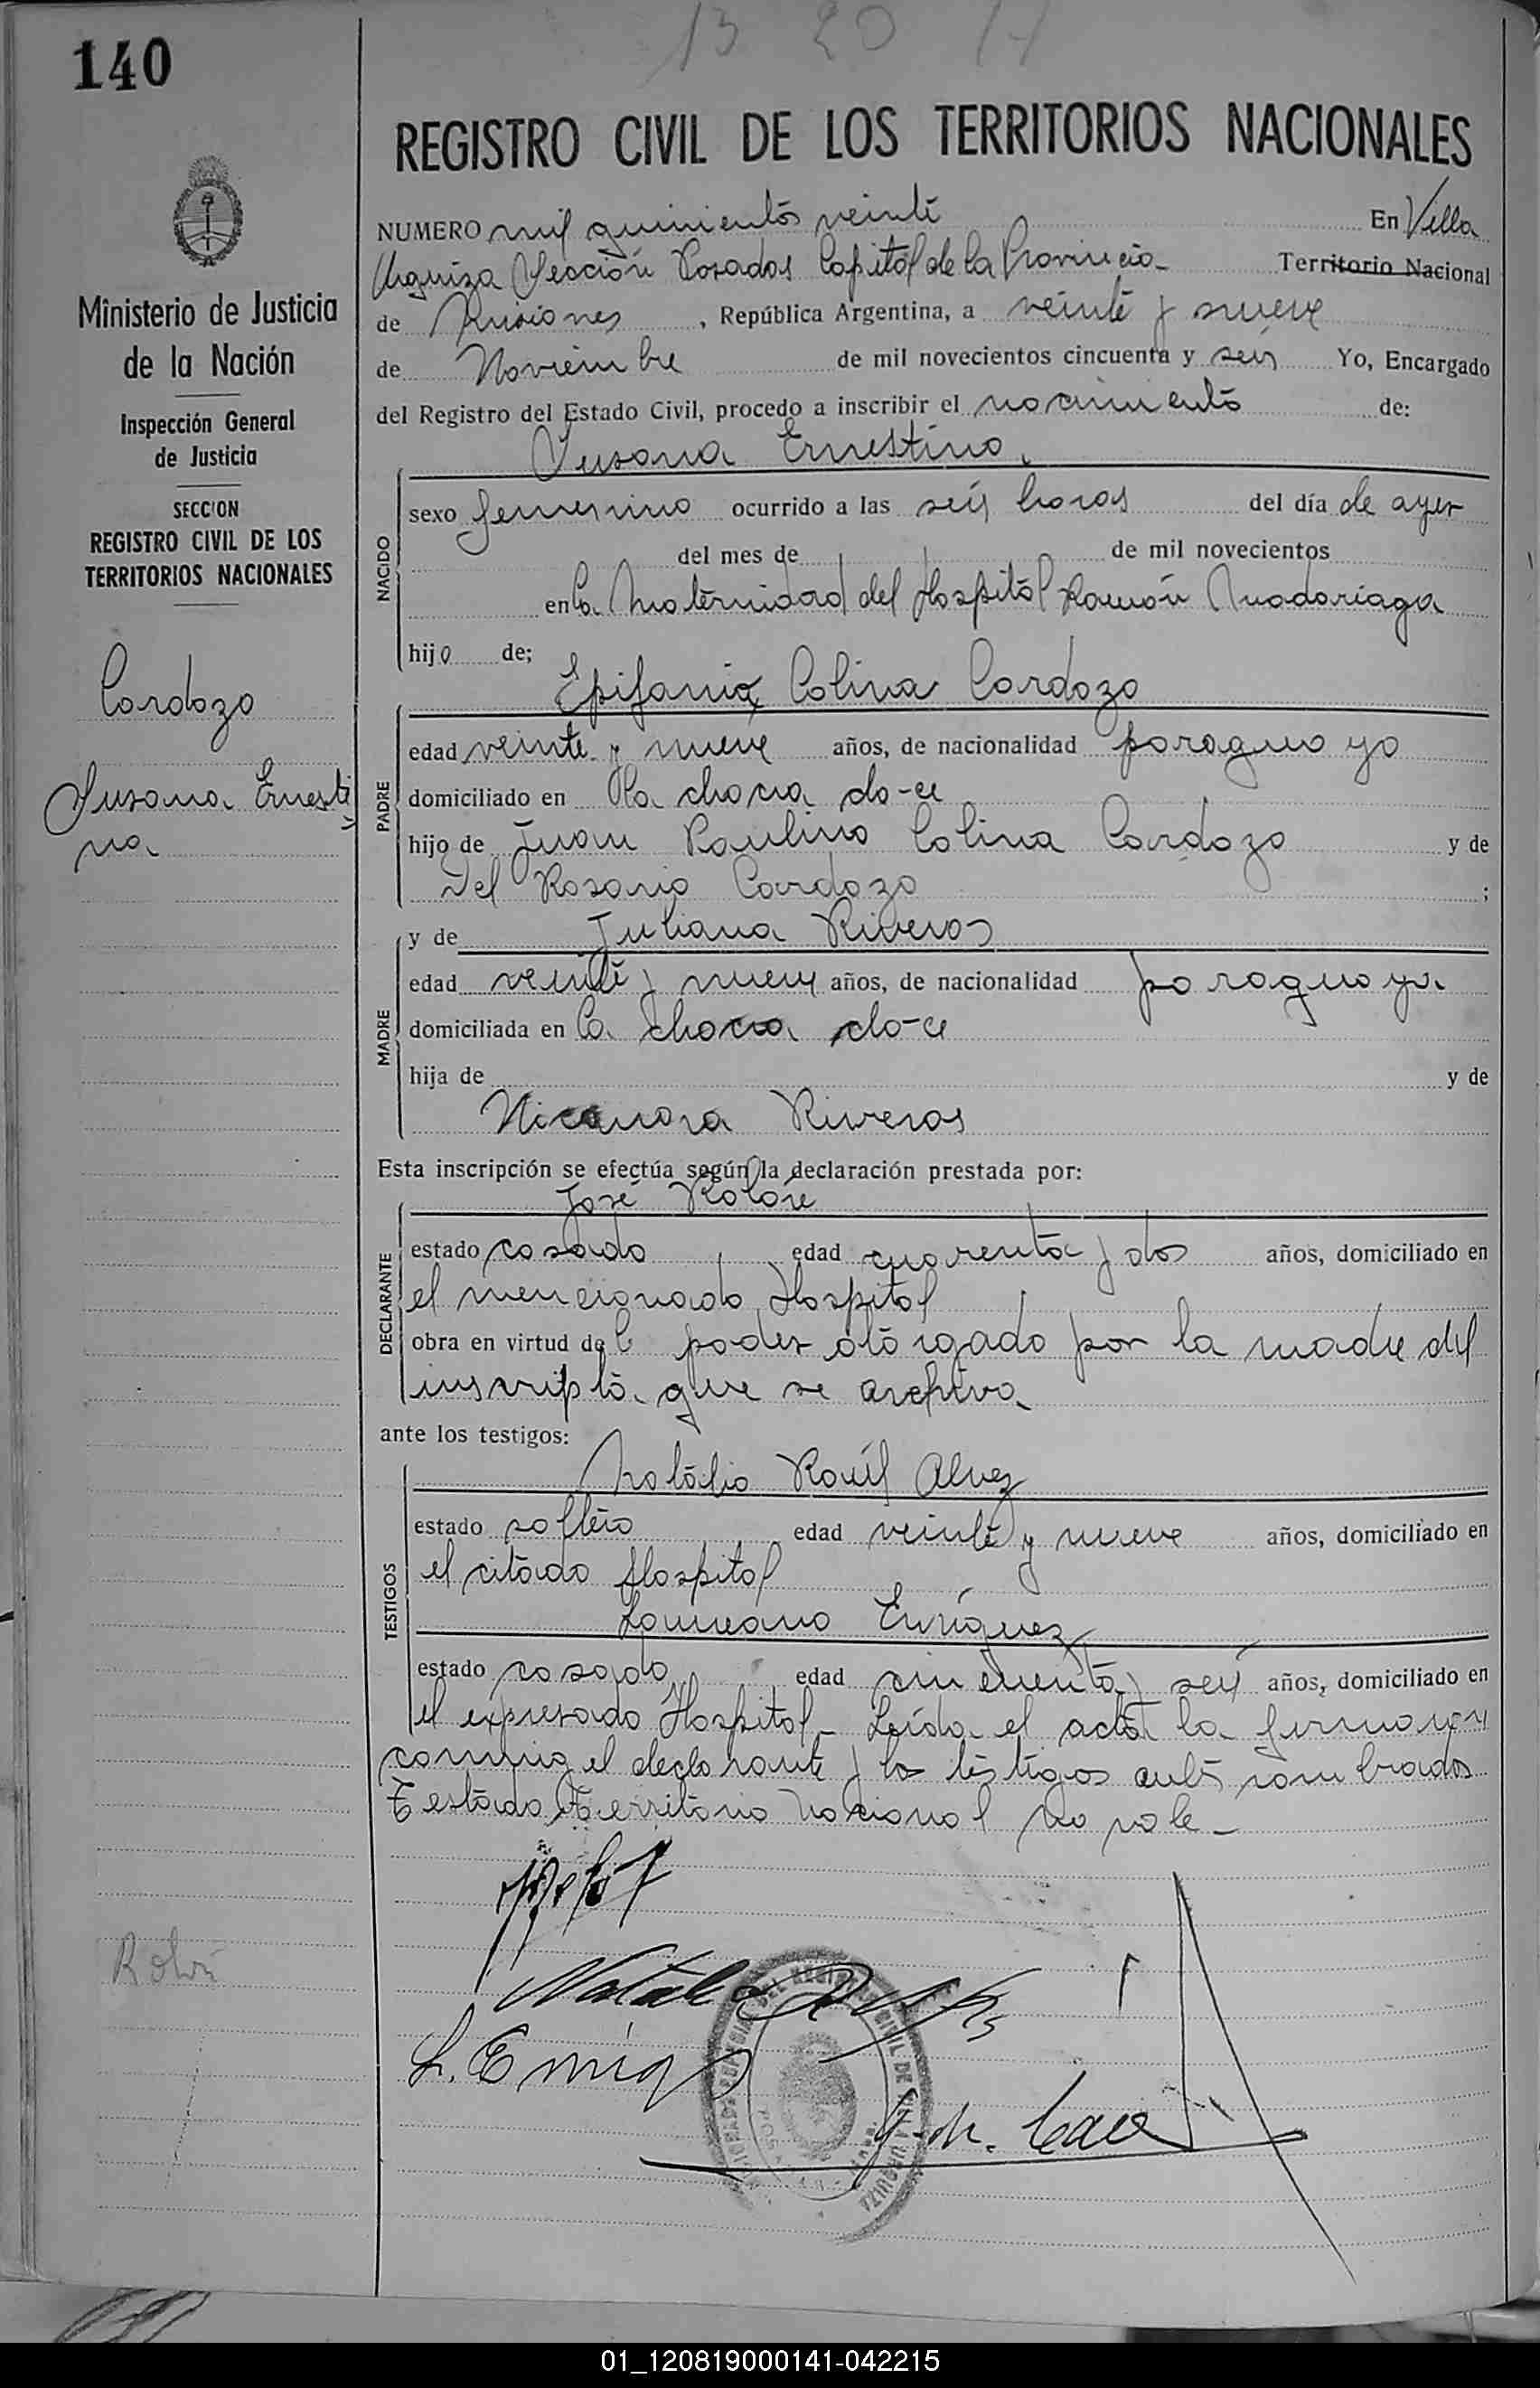 13 20 17
140
REGISTRO CIVIL DE LOS TERRITORIOS NACIONALES
Ministerio de Justicia
de la Nación
Inspección General
de Justicia
SECCION
REGISTRO CIVIL DE LOS
TERRITORIOS NACIONALES
Cardozo
Susana Ernesti
na
Rolón
NUMERO mil quinientos veinte En Villa
Urquiza Sección Posadas Capital de la Provincia- Territorio Nacional
de Misiones, República Argentina, a veinte y nueve
de Noviembre de mil novecientos cincuenta y seis Yo, Encargado
del Registro del Estado Civil, procedo a inscribir el nacimiento de:
Susana Ernestina
NACIDO
sexo femenino ocurrido a las seis horas del día de ayer
del mes de de mil novecientos
en la Maternidad del Hospital Ramón Madariaga
hijo de;
Epifanio Colina Cardozo
PADRE
edad veinte y nueve años, de nacionalidad paraguayo
domiciliado en la chacra doce
hijo de Juan Paulino Colina Cardozo y de
Del Rosario Cardozo ;
y de Juliana Riveros
MADRE
edad veinte y nueve años, de nacionalidad paraguaya
domiciliada en la chacra doce
hija de y de
Nicanora Riveros
Esta inscripción se efectúa según la declaración prestada por:
José Rolón
DECLARANTE
estado casado edad cuarenta y dos años, domiciliado en
el mencionado Hospital
obra en virtud del poder otorgado por la madre del
inscripto que se archiva
ante los testigos:
Natalio Raúl Alvez
TESTIGOS
estado soltero edad veinte y nueve años, domiciliado en
el citado Hospital
Laureano Enríquez
estado casado edad cincuenta y seis años, domiciliado en
el expresado Hospital- Leída el acta la firmaron
conmigo el declarante y los testigos antes nombrados
Testado Territorio Nacional no vale-
L. Enriq
01_120819000141-042215